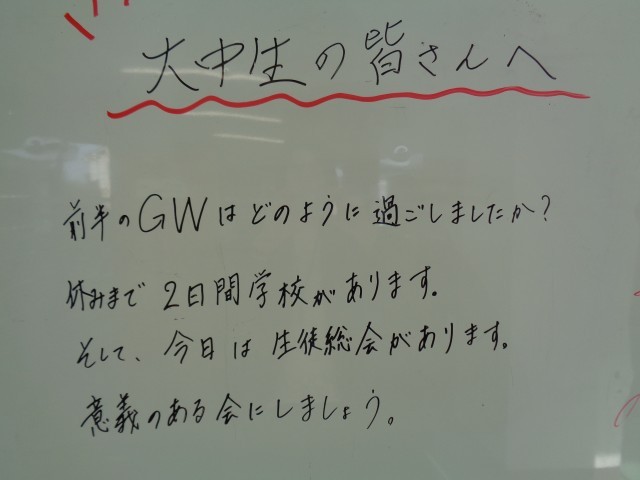 大中生の皆さんへ
前半のGWはどのように過ごしましたか?
休みまで2日間学校があります。
そして、今日は生徒総会があります。
意義のある会にしましょう。